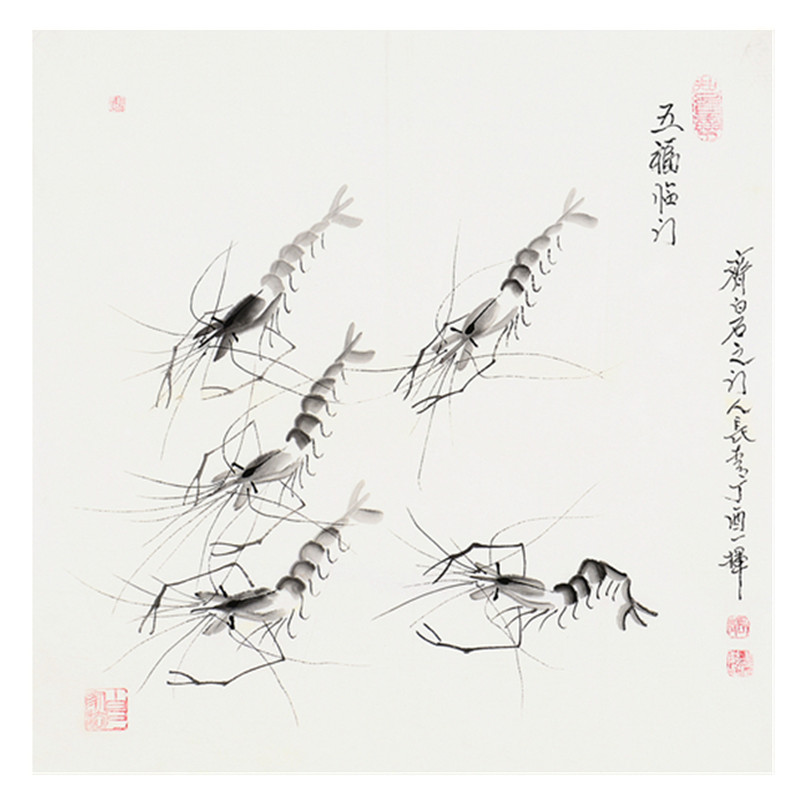 五福临门
齊白石之门人長李丁酉一揮